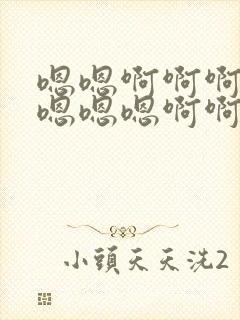 嗯嗯啊啊啊
嗯嗯嗯啊啊
小頭天天洗2